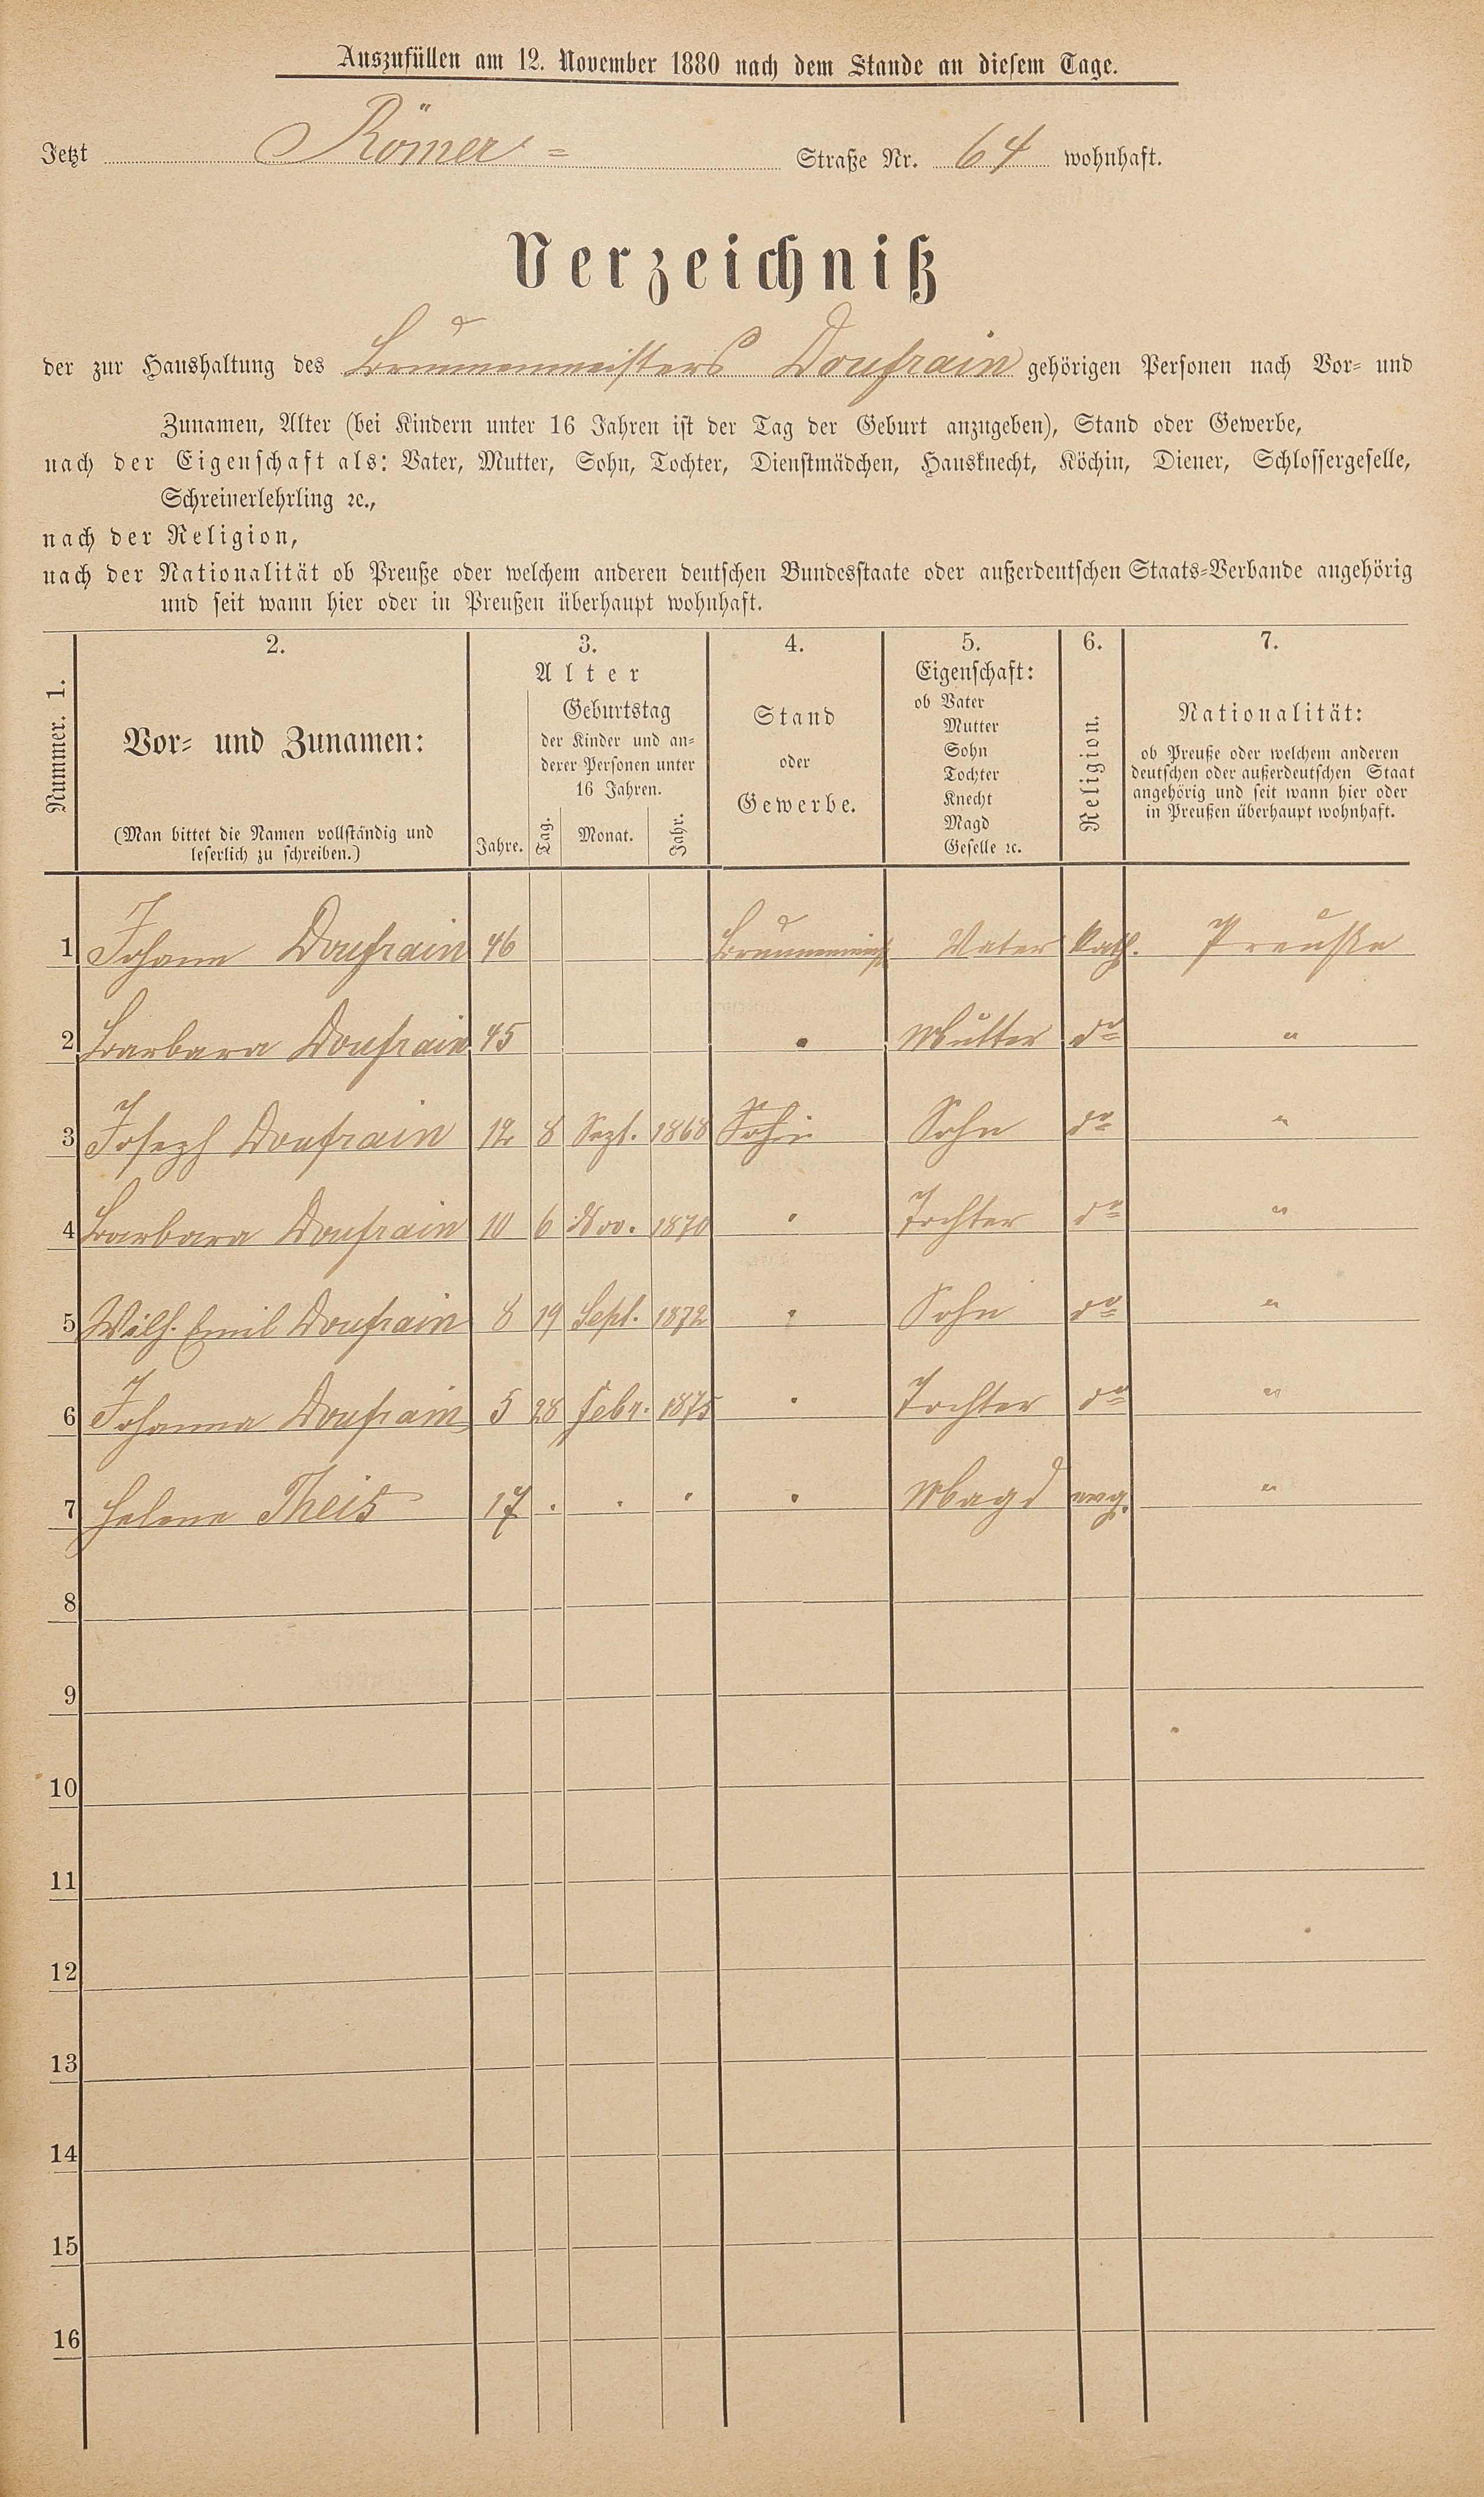 Auszufüllen am 12. November 1880 nach dem Stande an diesem Tage.
Jetzt Römer= Straße Nr. 64 wohnhaft.
Verzeichniß
der zur Haushaltung des Brunnenmeisters Doufrain gehörigen Personen nach Vor= und
Zunamen, Alter (bei Kindern unter 16 Jahren ist der Tag der Geburt anzugeben), Stand oder Gewerbe,
nach der Eigenschaft als: Vater, Mutter, Sohn, Tochter, Dienstmädchen, Hausknecht, Köchin, Diener, Schlossergeselle,
Schreinerlehrling ꝛc.,
nach der Religion,
nach der Nationalität ob Preuße oder welchem anderen deutschen Bundesstaate oder außerdeutschen Staats=Verbande angehörig
und seit wann hier oder in Preußen überhaupt wohnhaft.
Nummer. 1.
2.
Vor= und Zunamen:
(Man bittet die Namen vollständig und
leserlich zu schreiben.)
3.
Alter
Jahre.
Geburtstag
der Kinder und an=
derer Personen unter
16 Jahren.
Tag. Monat. Jahr.
4.
Stand
oder
Gewerbe.
5.
Eigenschaft:
ob Vater
Mutter
Sohn
Tochter
Knecht
Magd
Geselle ꝛc.
6.
Religion.
7.
Nationalität:
ob Preuße oder welchem anderen
deutschen oder außerdeutschen Staat
angehörig und seit wann hier oder
in Preußen überhaupt wohnhaft.
1 Johann Doufrain 46 Brunnenmeist Vater kath. Preuße
2 Barbara Doufrain 45 Mutter do "
3 Joseph Doufrain 12 8 Sept. 1868 Sohn Sohn do "
4 Barbara Doufrain 10 6 Nov. 1870 " Tochter do "
5 Wilh. Emil Doufrain 8 19 Sept. 1872 " Sohn do "
6 Johanna Doufrain 5 28 Febr. 1875 " Tochter do "
7 Helene Theis 17 . . " . Magd evg. "
8
9
10
11
12
13
14
15
16